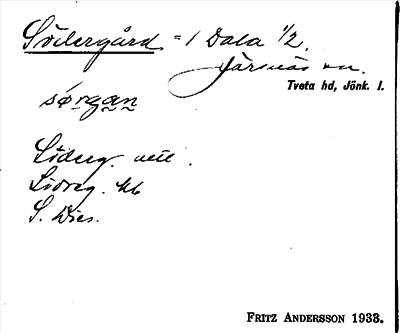 Södergård = 1 Dala 1/2.
Järsnäs sn.
Tveta hd, Jönk. l.
sørgan
Söderg.
Södreg. kb
S. Dies.
FRITZ ANDERSSON 1933.